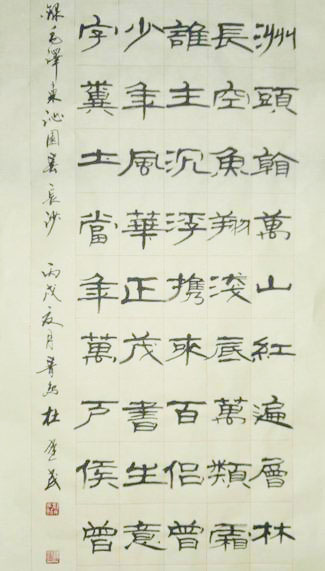 洲頭看萬山紅遍層林
長空魚翔淺底萬類霜
誰主沉浮携來百侶曾
少年風華正茂書生意
字糞土當年萬户侯曾
錄毛澤東沁園春長沙 丙戌夏月 杜